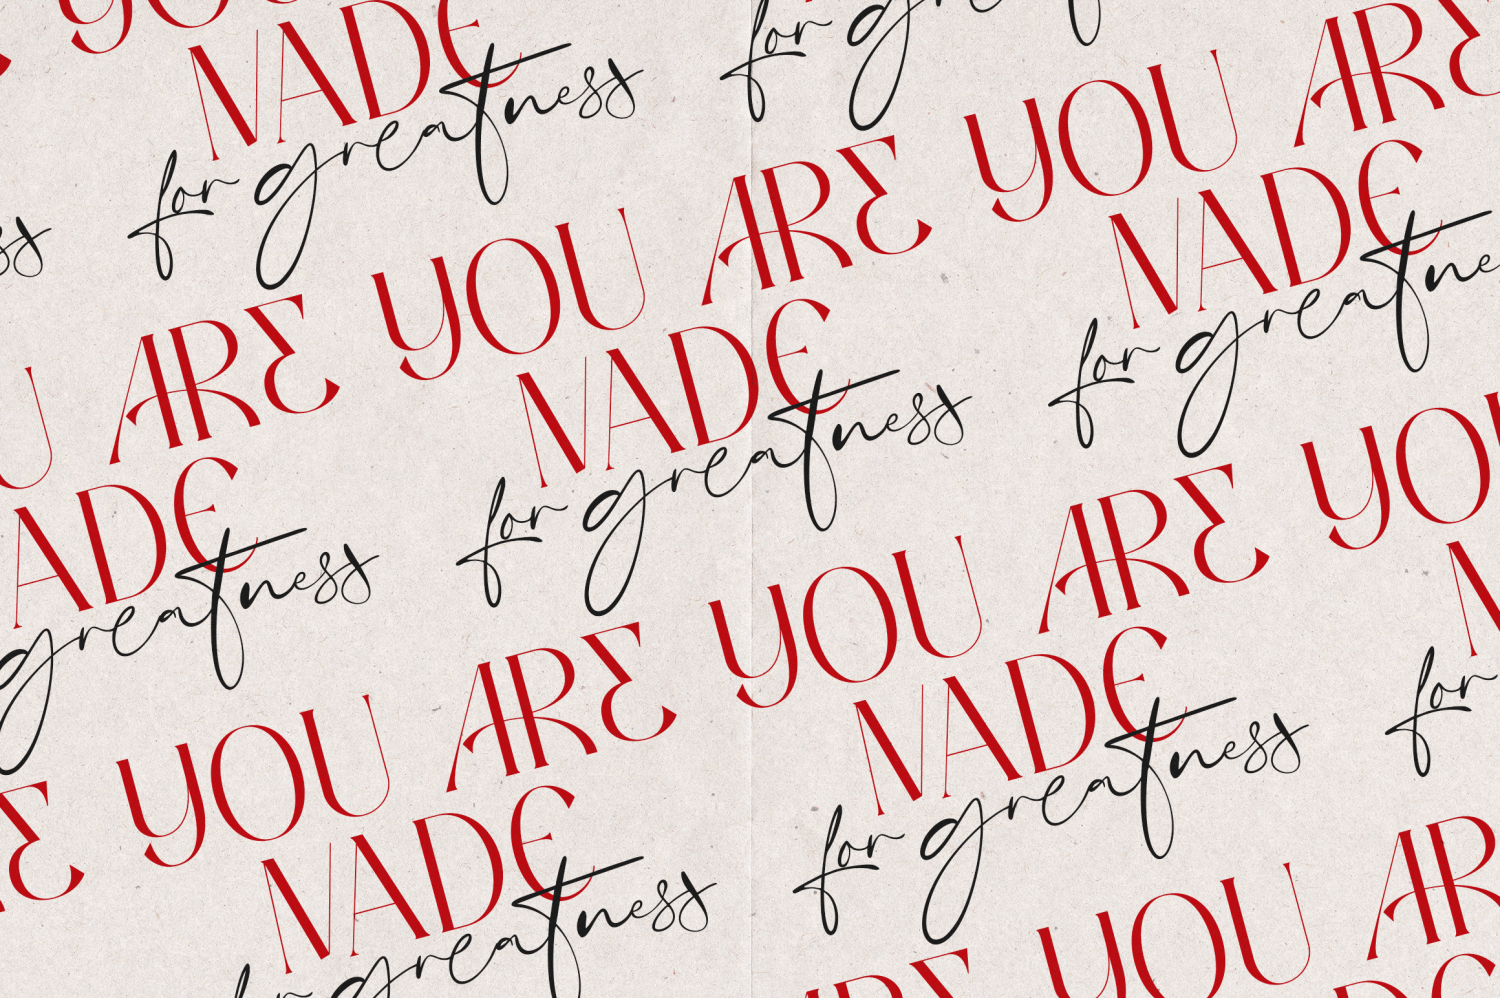 MADE
for greatness
for
YOU ARE
MADE
for greatne
YOU ARE
MADE
for greatness
U ARE
ADE
greatness
YOU ARE
MADE
for greatness
YOU
for
YOU ARE
MADE
for greatness
E
YOU AR